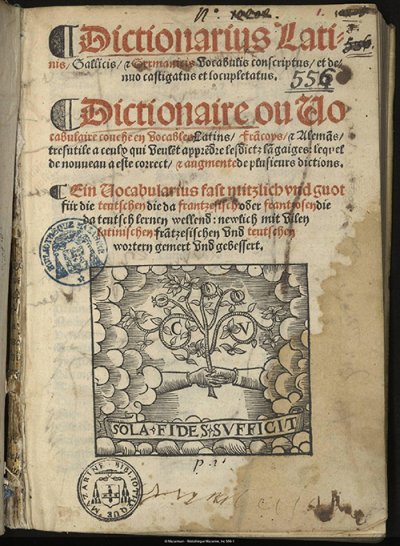 N°
1.
¶Dictionarius Lati-
nis, Gallicis, et Germanicis Vocabulis conscriptus, et de-
nuo castigatus et locupletatus.
556
¶Dictionaire ou Vo
cabulaire conche en Vocables Latins, Frācoys, et Alemās,
tresutile a ceulx qui veulēt apprēdre lesdictz lāgaiges: lequel
de nouveau a este correct, et augmente de plusieurs dictions.
¶Ein Vocabularius fast nützlich vnd guot
für die teutschen die da frantzesisch oder frantzosen die
da teutsch lernen wellend: newlich mit vilen
latinischen frātzesischen vnd teutschen
wortern gemert vnd gebessert.
BIBLIOTHEQUE
C V
SOLA FIDES SVFFICIT
MAZARINE BIBLIOTHEQUE
© Mazarinum - Bibliothèque Mazarine, Inc 556-1